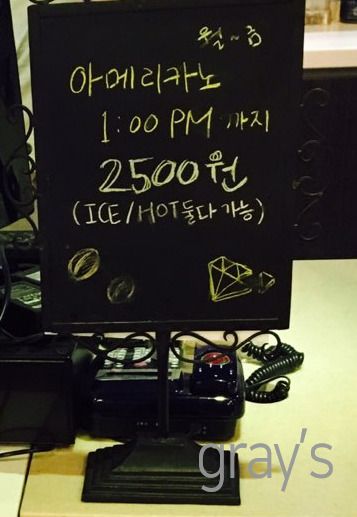 월~금
아메리카노
1:00 PM 까지
2500원
(ICE/HOT둘다 가능)
gray's